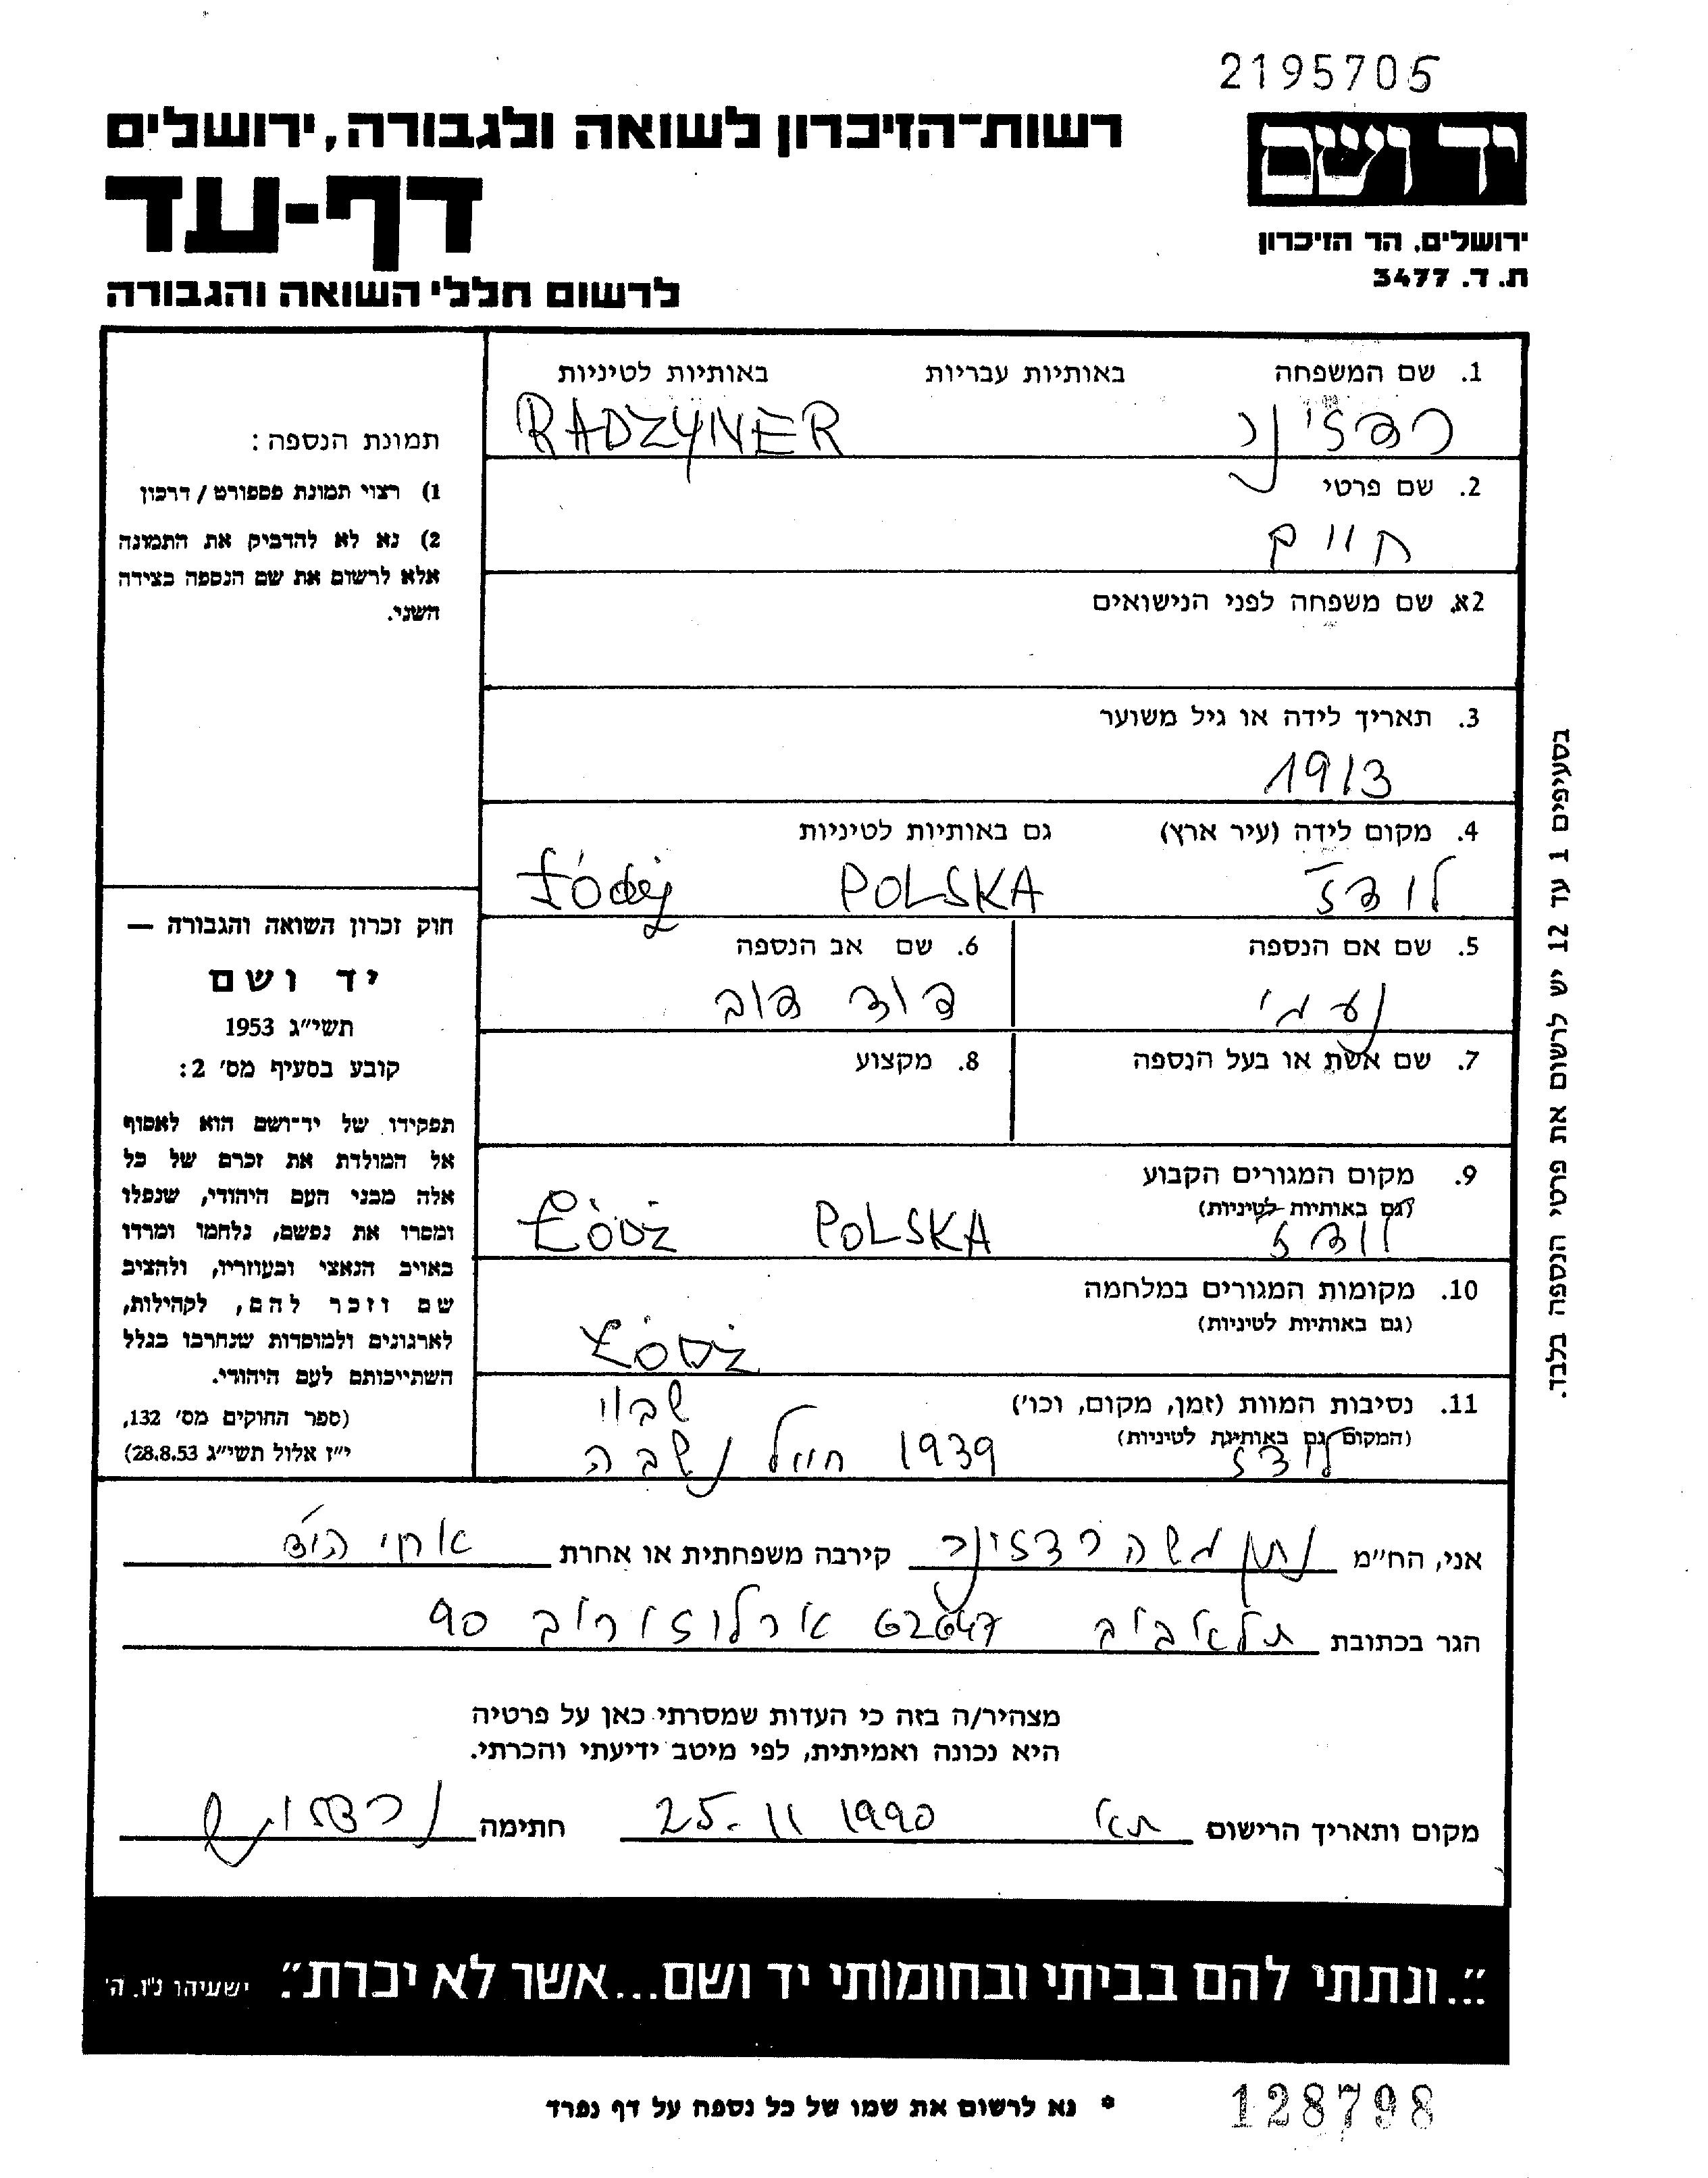 2195705
רשות־הזיכרון לשואה ולגבורה, ירושלים
יד ושם
דף-עד
ירושלים, הר הזיכרון
ת. ד. 3477
לרשום חללי השואה והגבורה
1. שם המשפחה באותיות עבריות באותיות לטיניות
רדזינר RADZYNER
2. שם פרטי
חיים
2א. שם משפחה לפני הנישואים
3. תאריך לידה או גיל משוער
1913
4. מקום לידה (עיר ארץ) גם באותיות לטיניות
לודז POLSKA Łódź
5. שם אם הנספה 6. שם אב הנספה
נעמי דוד דוב
7. שם אשת או בעל הנספה 8. מקצוע
9. מקום המגורים הקבוע
(גם באותיות לטיניות)
לודז POLSKA ŁÓDŹ
10. מקומות המגורים במלחמה
(גם באותיות לטיניות)
ŁÓDŹ
11. נסיבות המוות (זמן, מקום, וכו')
(המקום גם באותיות לטיניות)
שבוי
לודז 1939 חייל נשבה
תמונת הנספה:
1) רצוי תמונת פספורט / דרכון
2) נא לא להדביק את התמונה
אלא לרשום את שם הנספה בצידה
השני.
חוק זכרון השואה והגבורה —
יד ושם
תשי"ג 1953
קובע בסעיף מס' 2:
תפקידו של יד־ושם הוא לאסוף
אל המולדת את זכרם של כל
אלה מבני העם היהודי, שנפלו
ומסרו את נפשם, נלחמו ומרדו
באויב הנאצי ובעוזריו, ולהציב
שם וזכר להם, לקהילות,
לארגונים ולמוסדות שנחרבו בגלל
השתייכותם לעם היהודי.
(ספר החוקים מס' 132,
י"ז אלול תשי"ג 28.8.53)
בסעיפים 1 עד 12 יש לרשום את פרטי הנספה בלבד.
אני, הח"מ נתן משה רדזינר קירבה משפחתית או אחרת אחי הי"ד
הגר בכתובת תל אביב 62647 ארלוזורוב 90
מצהיר/ה בזה כי העדות שמסרתי כאן על פרטיה
היא נכונה ואמיתית, לפי מיטב ידיעתי והכרתי.
מקום ותאריך הרישום ת"א 25.11 1990 חתימה
"...ונתתי להם בביתי ובחומותי יד ושם...אשר לא יכרת". ישעיהו נ"ו, ה'
* נא לרשום את שמו של כל נספה על דף נפרד
128798